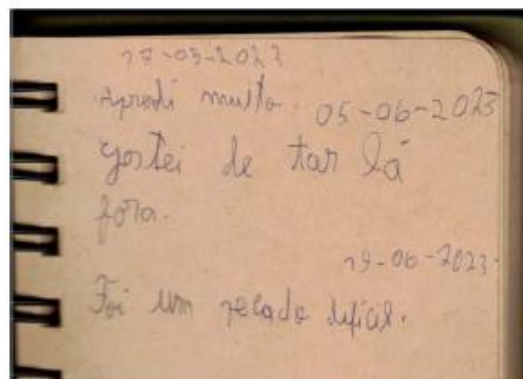 17-05-2023
Aprodi muito. 05-06-2023
gostei de tar lá
fora.
19-06-2023
Foi um recado difícel.